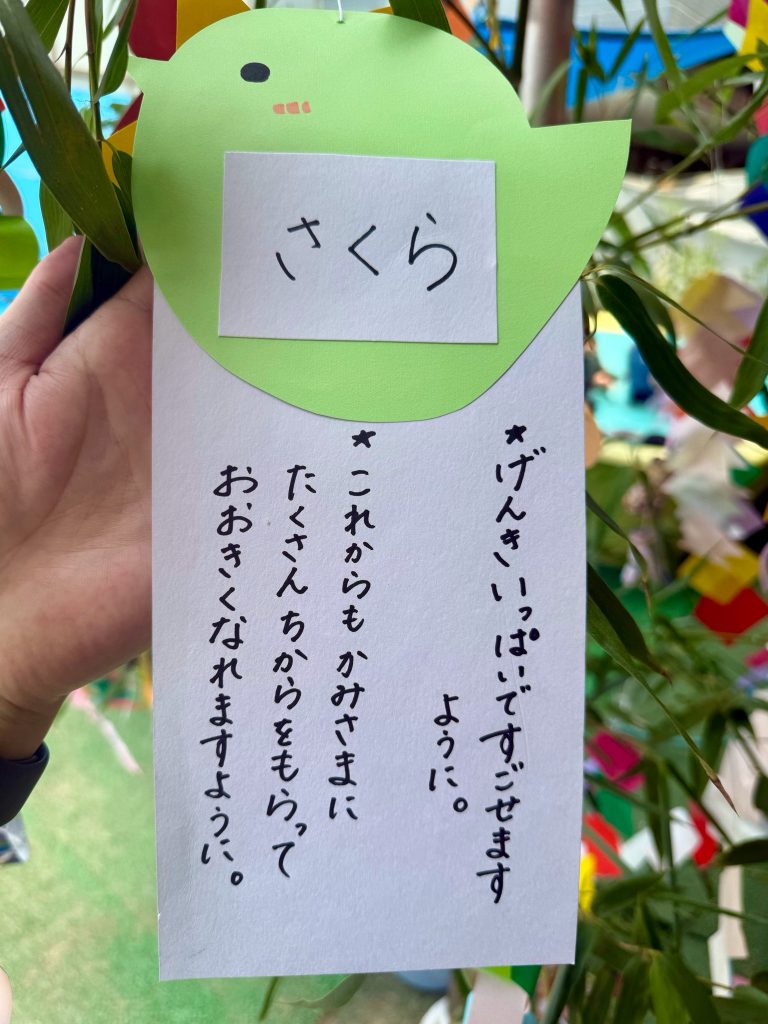 さくら
★げんきいっぱいですごせます
ように。
★これからもかみさまに
たくさんちからをもらって
おおきくなれますように。